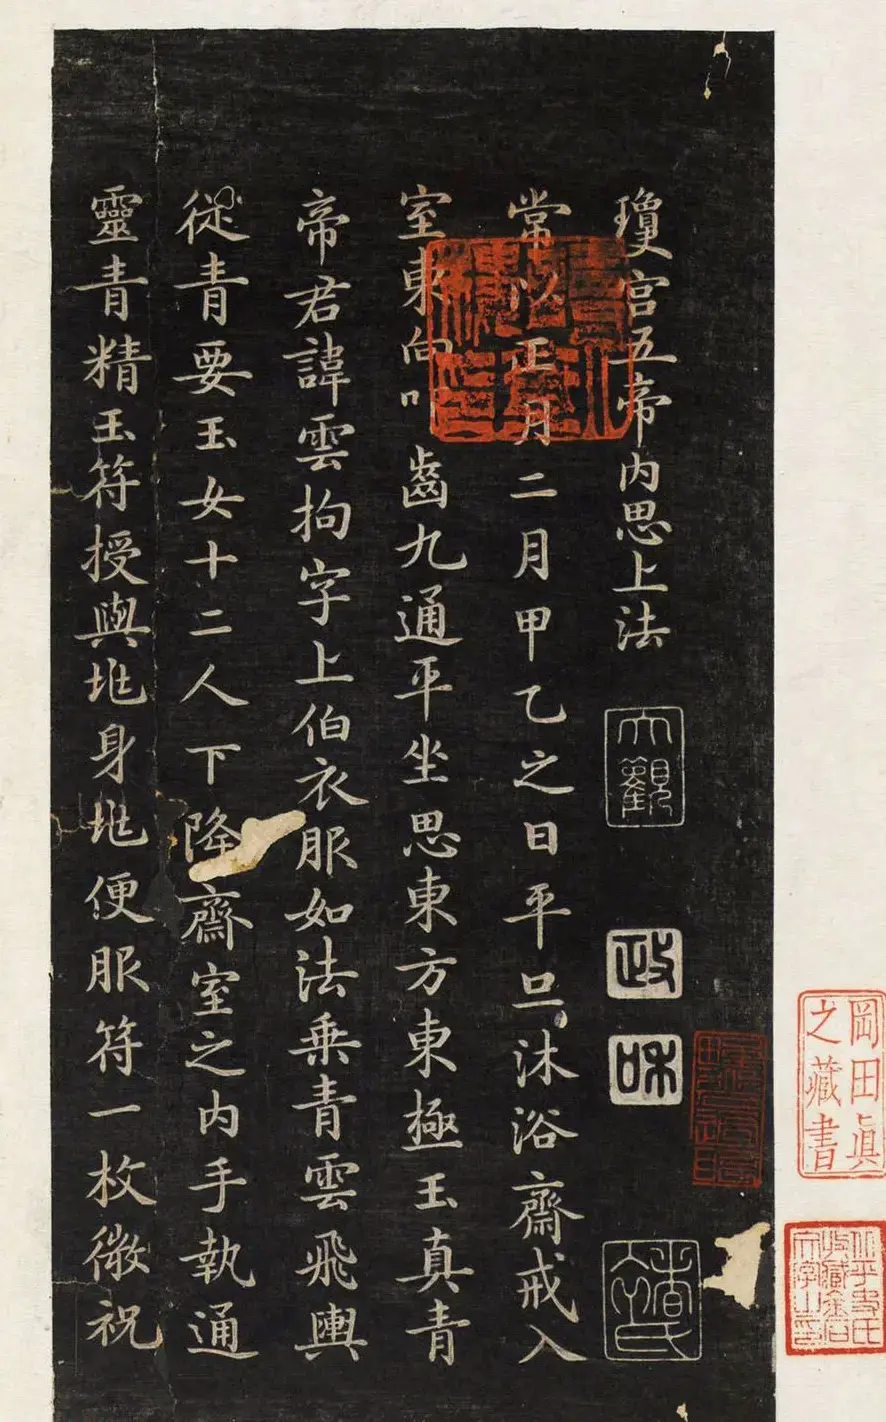 瓊宫五帝内思上法
常以正月二月甲乙之日平旦沐浴齋戒入
室東向叩齒九通平坐思東方東極玉真青
帝君諱雲拘字上伯衣服如法乗青雲飛輿
從青要玉女十二人下降齋室之内手執通
靈青精玉符授與兆身兆便服符一枚微祝
大觀
政
和
岡田眞
之藏書